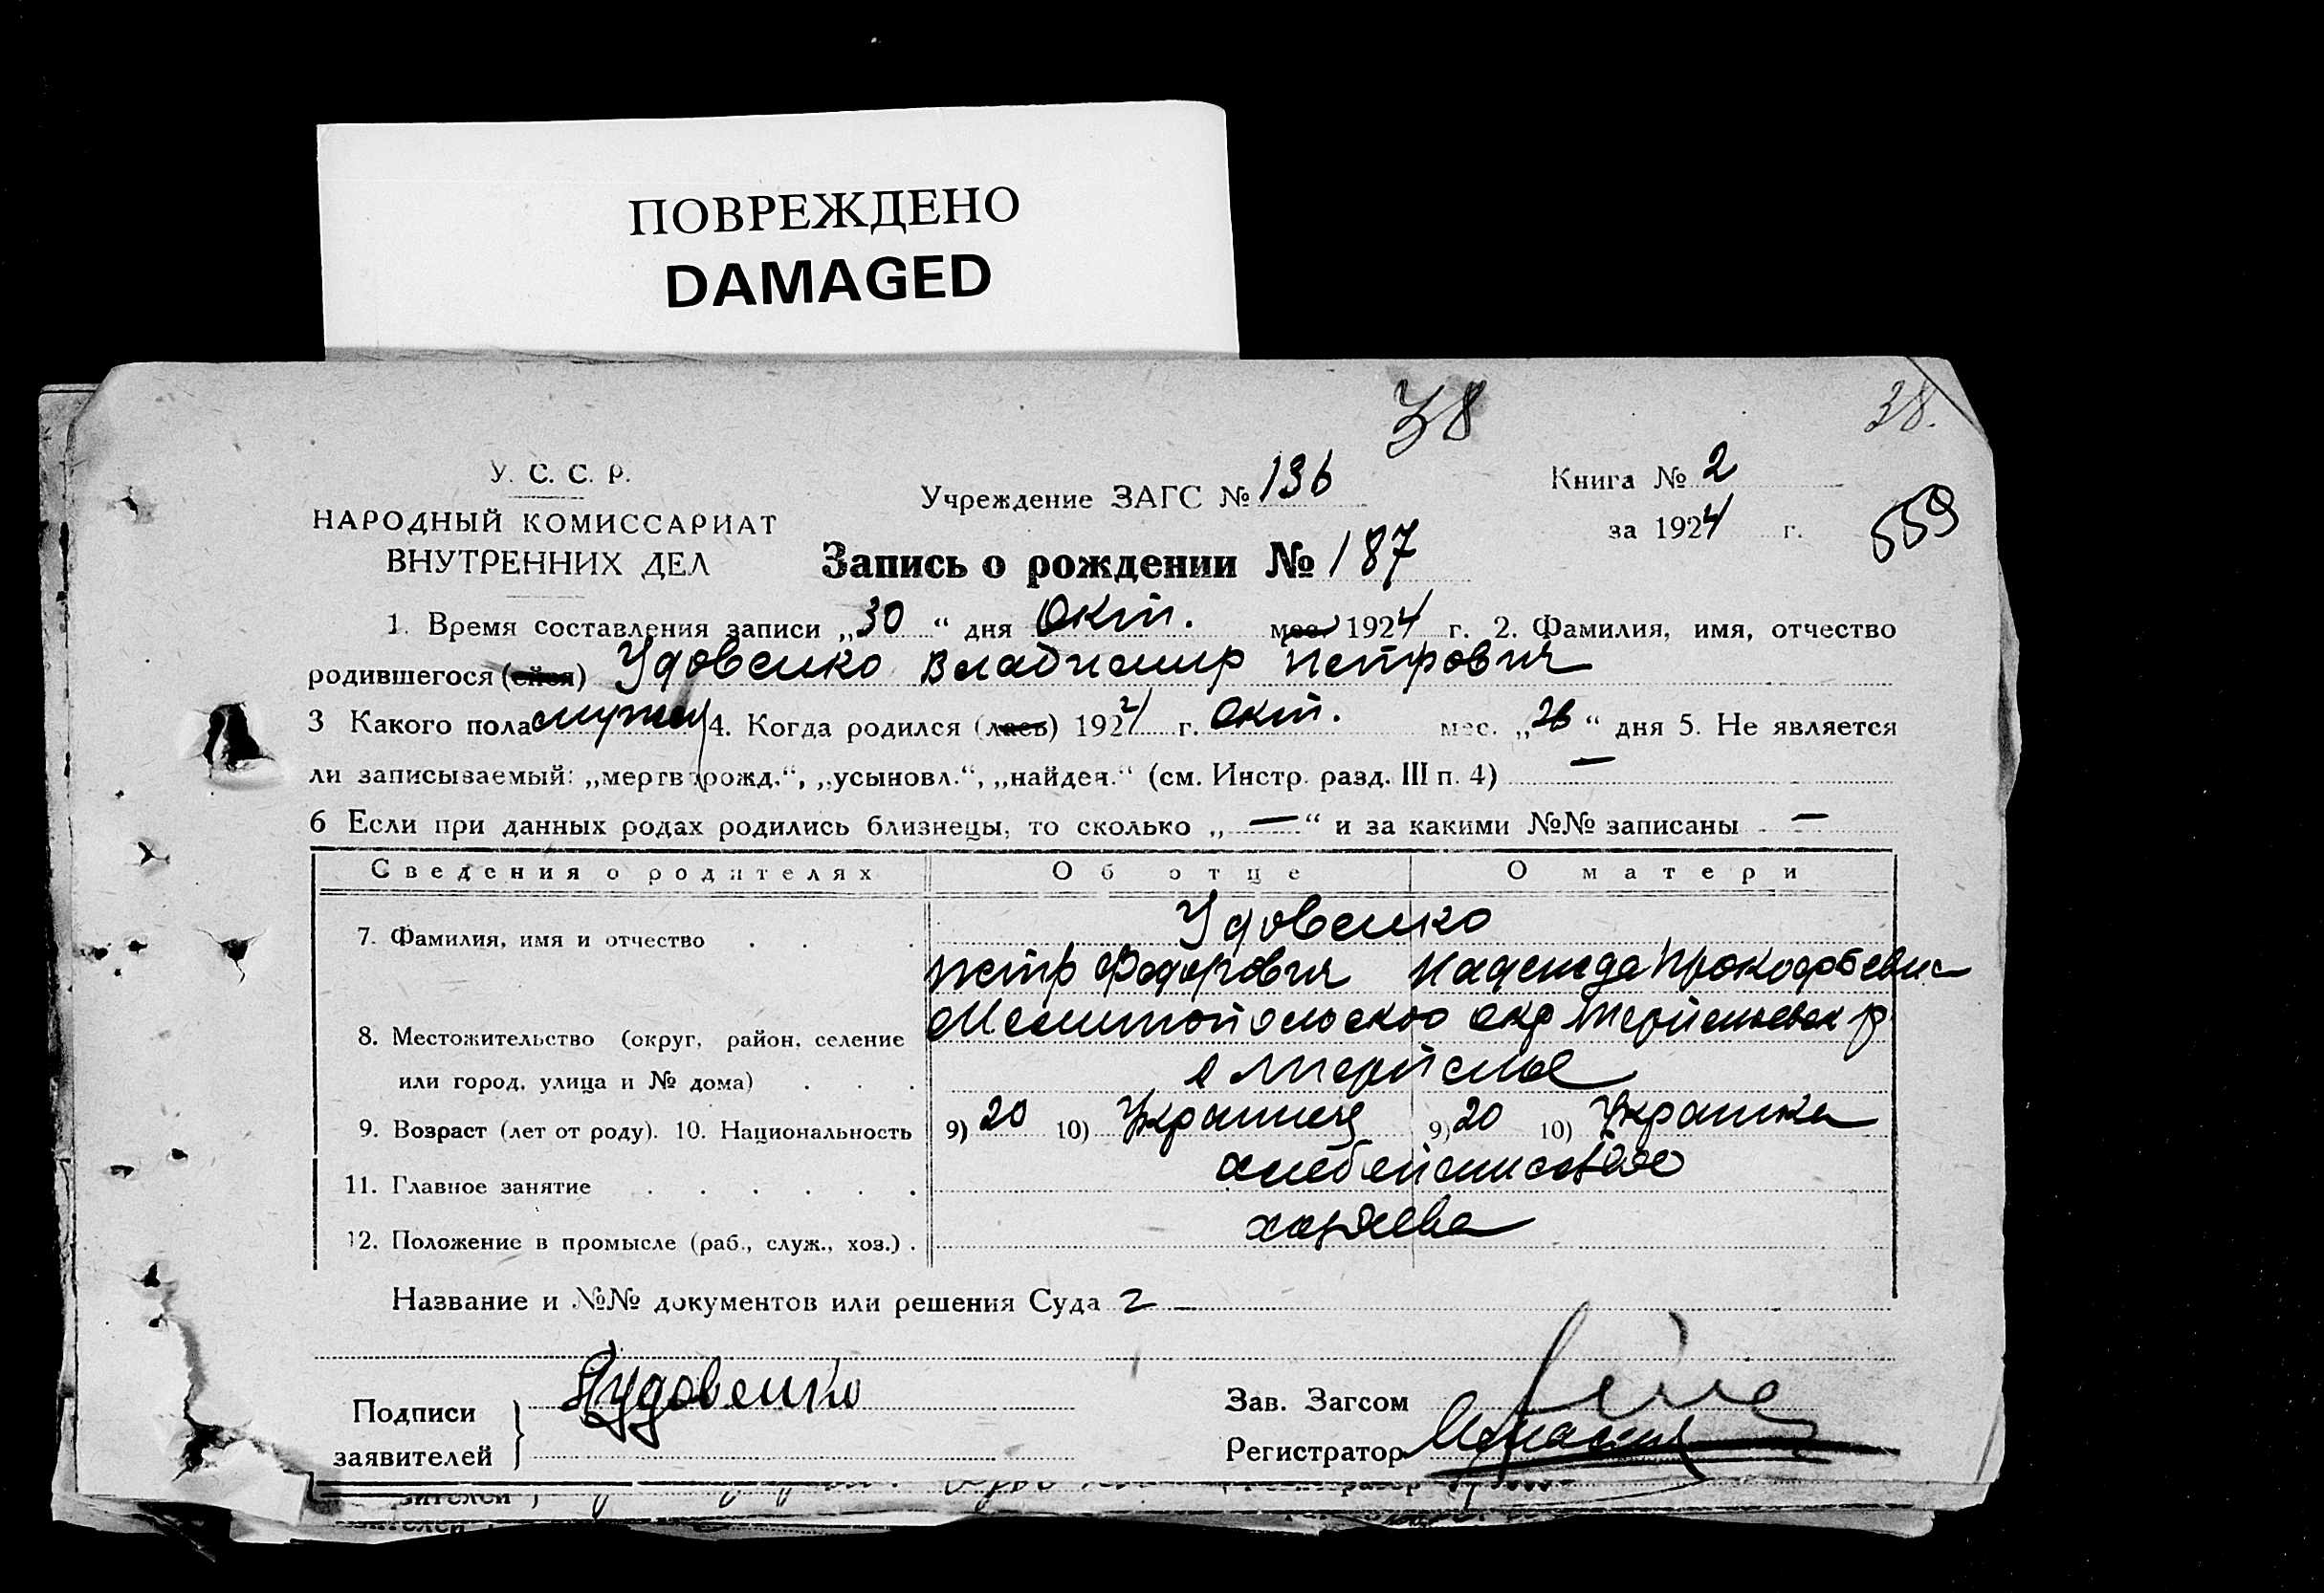 ПОВРЕЖДЕНО
DAMAGED
38
38.
У. С. С. Р.
НАРОДНЫЙ КОМИССАРИАТ
ВНУТРЕННИХ ДЕЛ
Учреждение ЗАГС № 136
Книга № 2
за 1924 г.
559
Запись о рождении № 187
1. Время составления записи „30“ дня Окт. мес. 1924 г. 2. Фамилия, имя, отчество
родившегося (ейся) Удовенко Владимир Петрович
3 Какого пола мужск 4. Когда родился (лась) 1924 г. Окт. мес. „26“ дня 5. Не является
ли записываемый: „мертворожд.“, „усыновл.“, „найден.“ (см. Инстр. разд. III п. 4) —
6 Если при данных родах родились близнецы, то сколько „—“ и за какими №№ записаны —
Сведения о родителях Об отце О матери
7. Фамилия, имя и отчество . . . Удовенко
Петр Федорович Надежда Прокофьевна
8. Местожительство (округ, район, селение Мелитопольского окр
или город, улица и № дома) . . .
9. Возраст (лет от роду). 10. Национальность 9) 20 10) Украинец 9) 20 10) Украинка
11. Главное занятие . . . . . . хлебопашество
12. Положение в промысле (раб., служ., хоз.) . хозяева
Название и №№ документов или решения Суда 2 —
Подписи
заявителей
Удовенко
Зав. Загсом
Регистратор